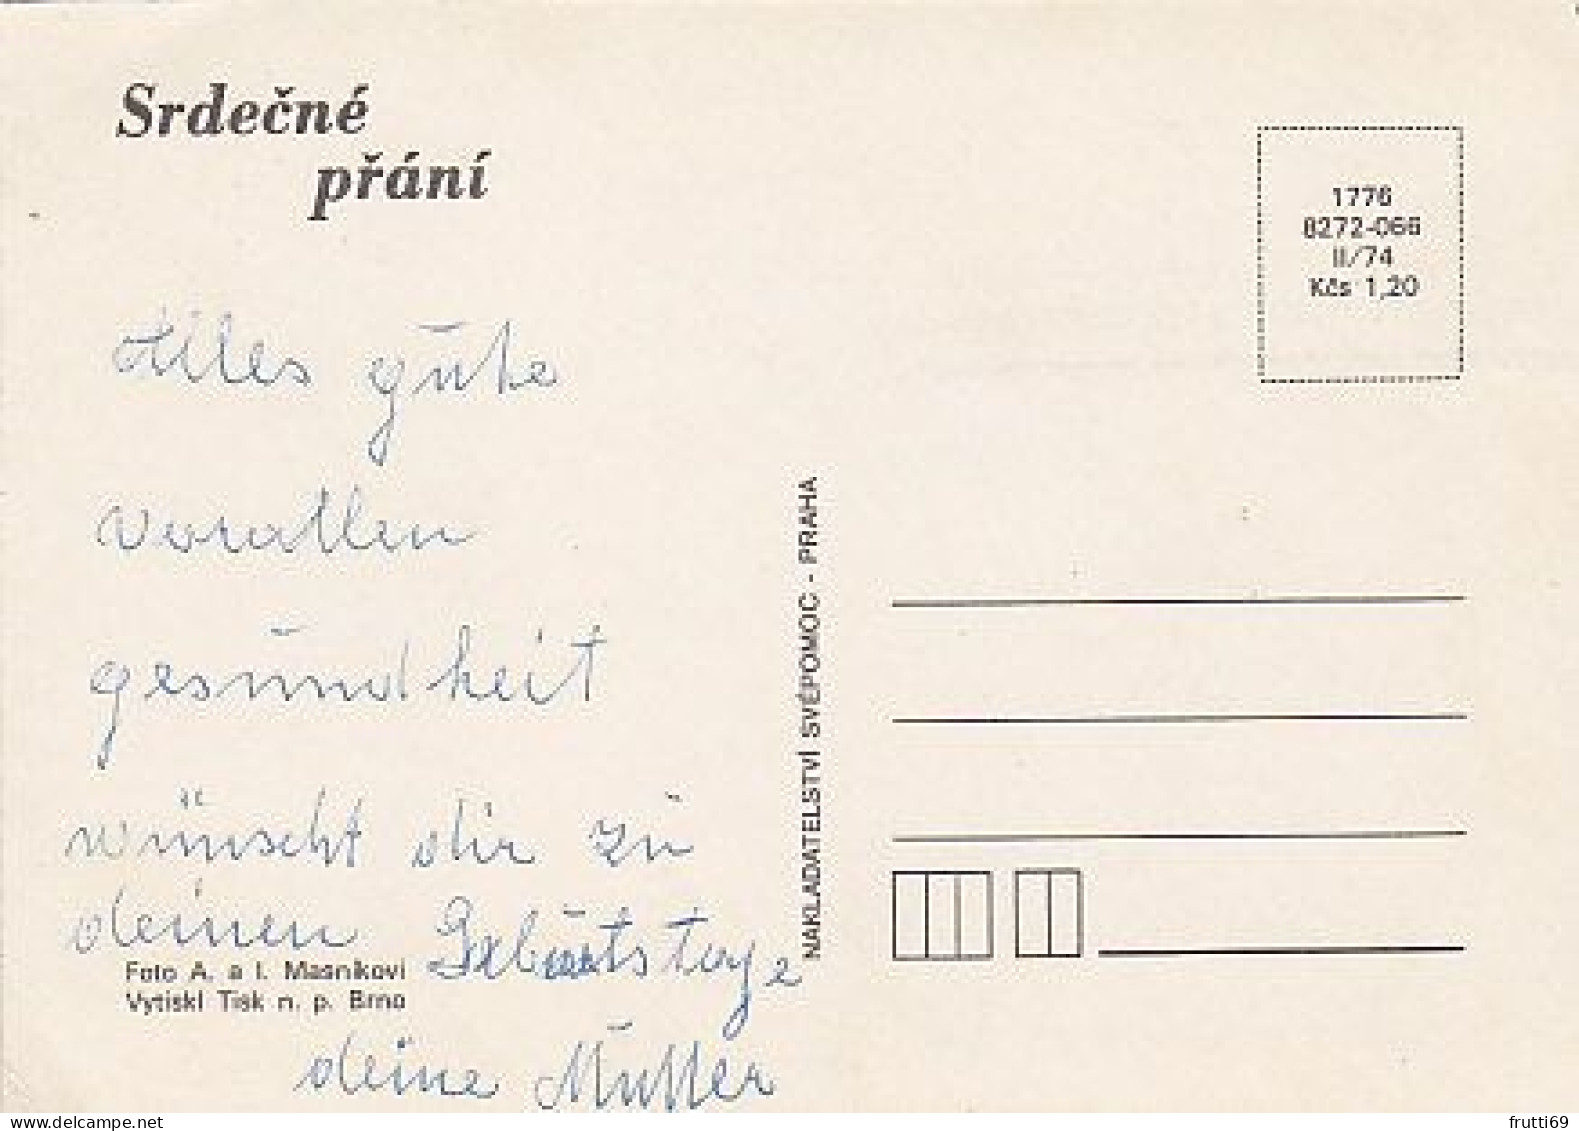 Srdečné
přání
1776
8272-066
II/74
Kčs 1,20
Alles gūte
vorallen
gesūndheit
wünscht dir zū
deinen Gebūrtstage
deine Mutter
Foto A. a I. Masníkovi
Vytiskl Tisk n. p. Brno
NAKLADATELSTVÍ SVÉPOMOC - PRAHA
delcampe.net
frutti69